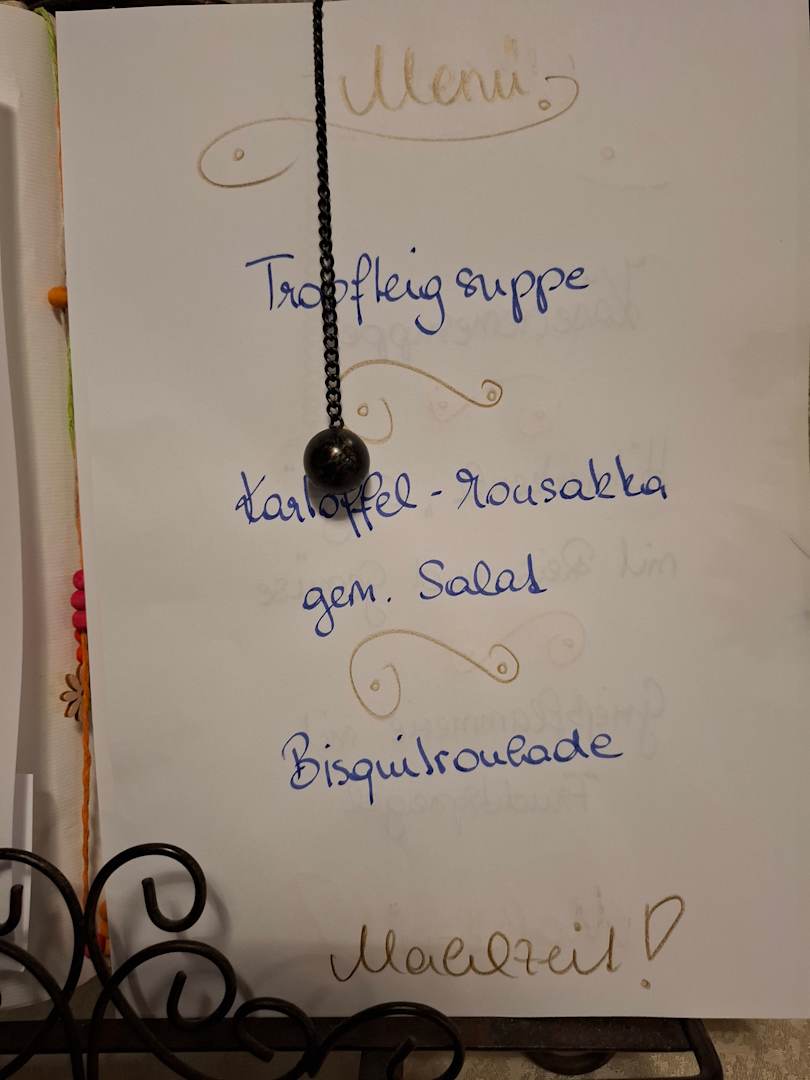 Menü
Tropfteigsuppe
Kartoffel-Mousakka
gem. Salat
Bisquitroulade
Mahlzeit!